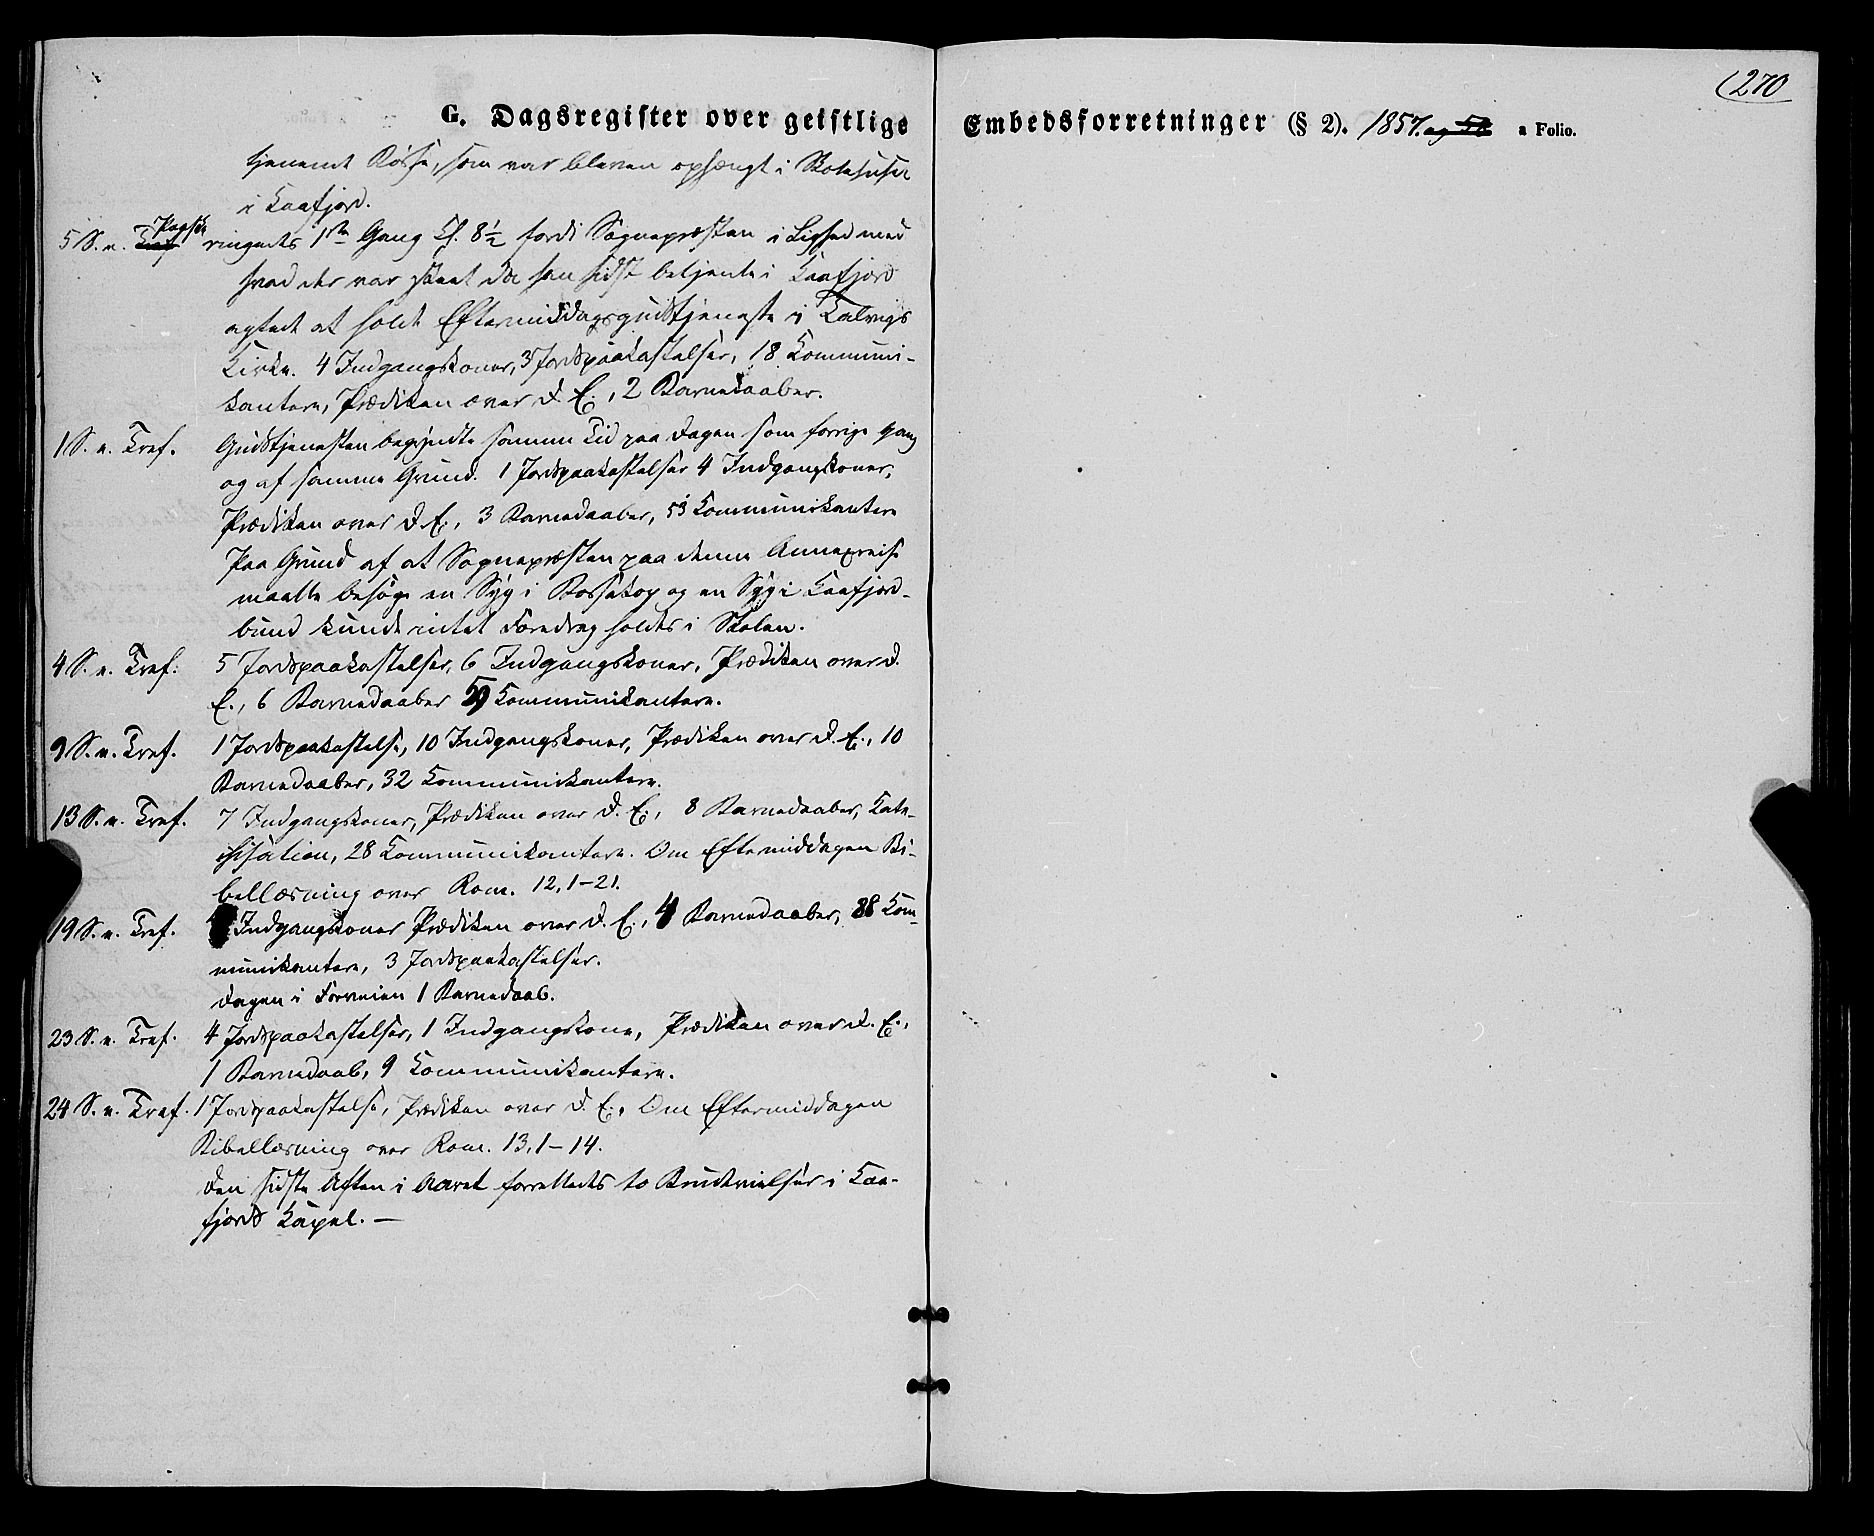 270
G. Dagsregister over geistlige Embedsforretninger (§ 2). 1857. og 58 a Folio.
tjenende Bøsse, som var bleven ophængt i Skolehuset
i Kaafjord.
5 S. e. Paaske ringedes 1ste Gang Kl. 8½ fordi Sognepræsten i Lighed med
hvad der var skeet da han sidst betjente i Kaafjord
agtede at holde Eftermiddagsgudstjeneste i Talvigs
Kirke. 4 Indgangskoner, 3 Jordspaakastelser, 18 Kommuni-
kantere, Prædiken over d. E., 2 Barnedaaber.
1 S. e. Tref. Gudstjenesten begyndte samme Tid paa Dagen som forrige Gang
og af samme Grund. 1 Jordspaakastelser 4 Indgangskoner,
Prædiken over d. E., 3 Barnedaaber, 53 Kommunikantere
Paa Grund af at Sognepræsten paa denne Annexreise
maatte besøge en Syg i Bossekop og en Syg i Kaafjord-
bund kunde intet Foredrag holdes i Skolen.
4 S. e. Tref. 5 Jordspaakastelser, 6 Indgangskoner, Prædiken over d.
E., 6 Barnedaaber 59 Kommunikantere.
9 S. e. Tref. 1 Jordspaakastelse, 10 Indgangskoner, Prædiken over d. E., 10
Barnedaaber, 32 Kommunikantere.
13 S. e. Tref. 7 Indgangskoner, Prædiken over d. E., 8 Barnedaaber, Kate-
chisation, 28 Kommunikantere. Om Eftermiddagen Bi-
bellæsning over Rom. 12, 1-21.
19 S. e. Tref. Indgangskoner Prædiken over d. E., 4 Barnedaaber, 88 Kom-
munikantere, 3 Jordspaakastelser.
Dagen i Forveien 1 Barnedaab.
23 S. e. Tref. 4 Jordspaakastelser, 1 Indgangskone, Prædiken over d. E.,
1 Barnedaab, 9 Kommunikantere.
24 S. e. Tref. 1 Jordspaakastelse, Prædiken over d. E., Om Eftermiddagen
Bibellæsning over Rom. 13, 1-14.
Den sidste Aften i Aaret forrettedes to Brudevielser i Kaa-
fjords Kapel. —